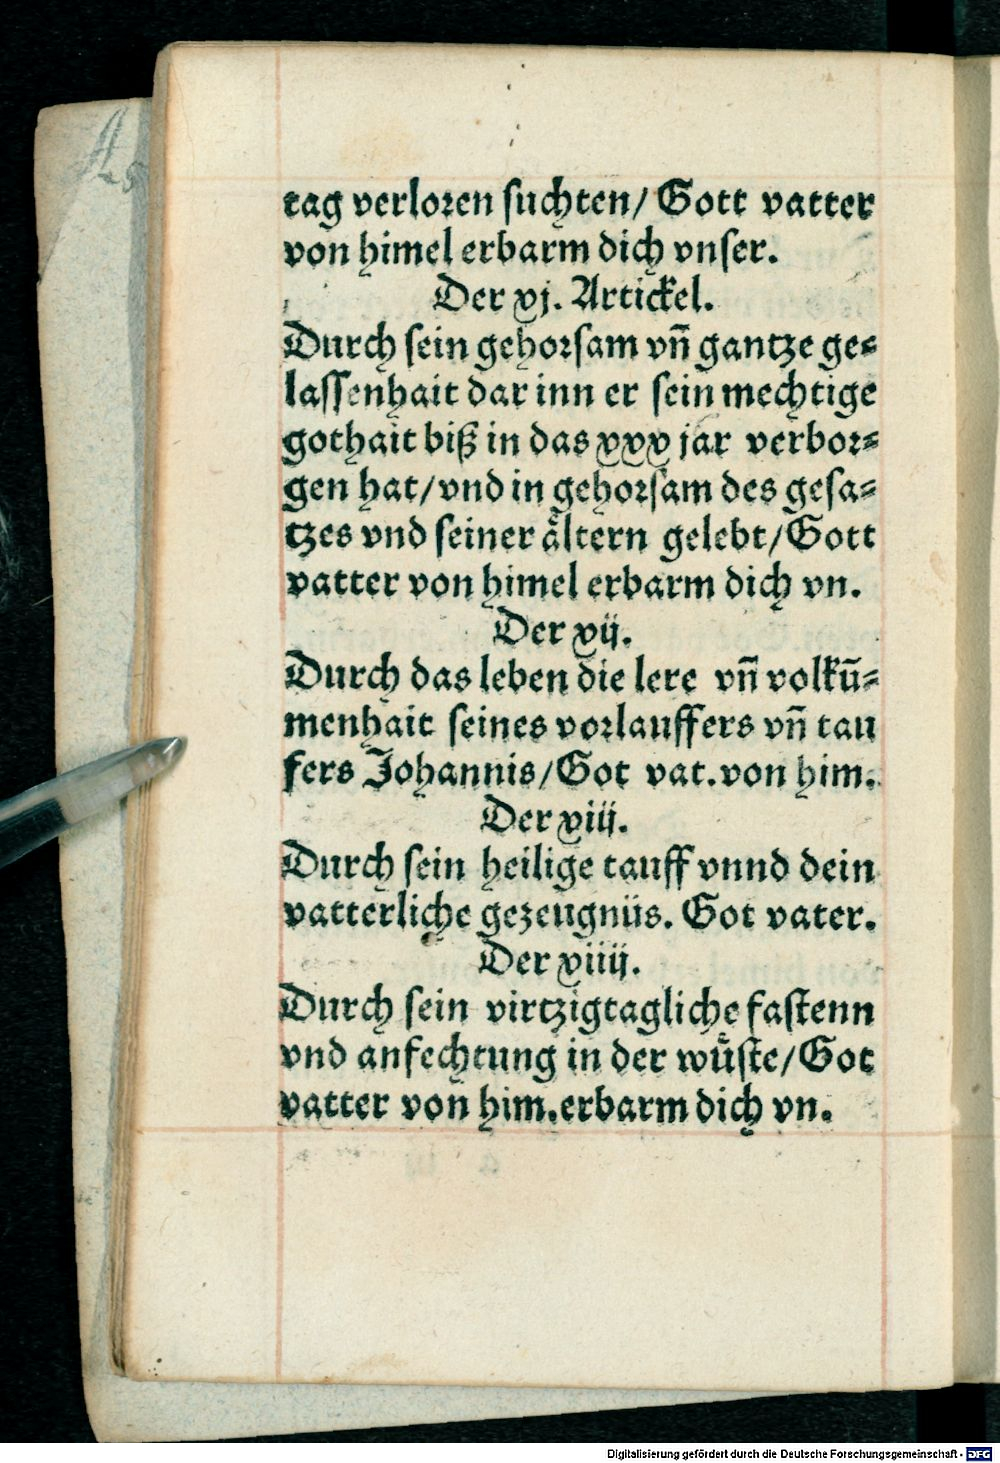 tag verloren suchten/ Gott vatter
von himel erbarm dich vnser.
Der xj. Artickel.
Durch sein gehorsam vn̄ gantze ge⸗
lassenhait dar inn er sein mechtige
gothait biß in das xxx jar verbor⸗
gen hat/vnd in gehorsam des gesa⸗
tzes vnd seiner aͤltern gelebt/Gott
vatter von himel erbarm dich vn.
Der xij.
Durch das leben die lere vn̄ volkū⸗
menhait seines vorlauffers vn̄ tau
fers Johannis/Got vat.von him.
Der xiij.
Durch sein heilige tauff vnnd dein
vatterliche gezeugnüs. Got vater.
Der xiiij.
Durch sein virtzigtagliche fastenn
vnd anfechtung in der wuͤste/Got
vatter von him.erbarm dich vn.
Digitalisierung gefördert durch die Deutsche Forschungsgemeinschaft - DFG